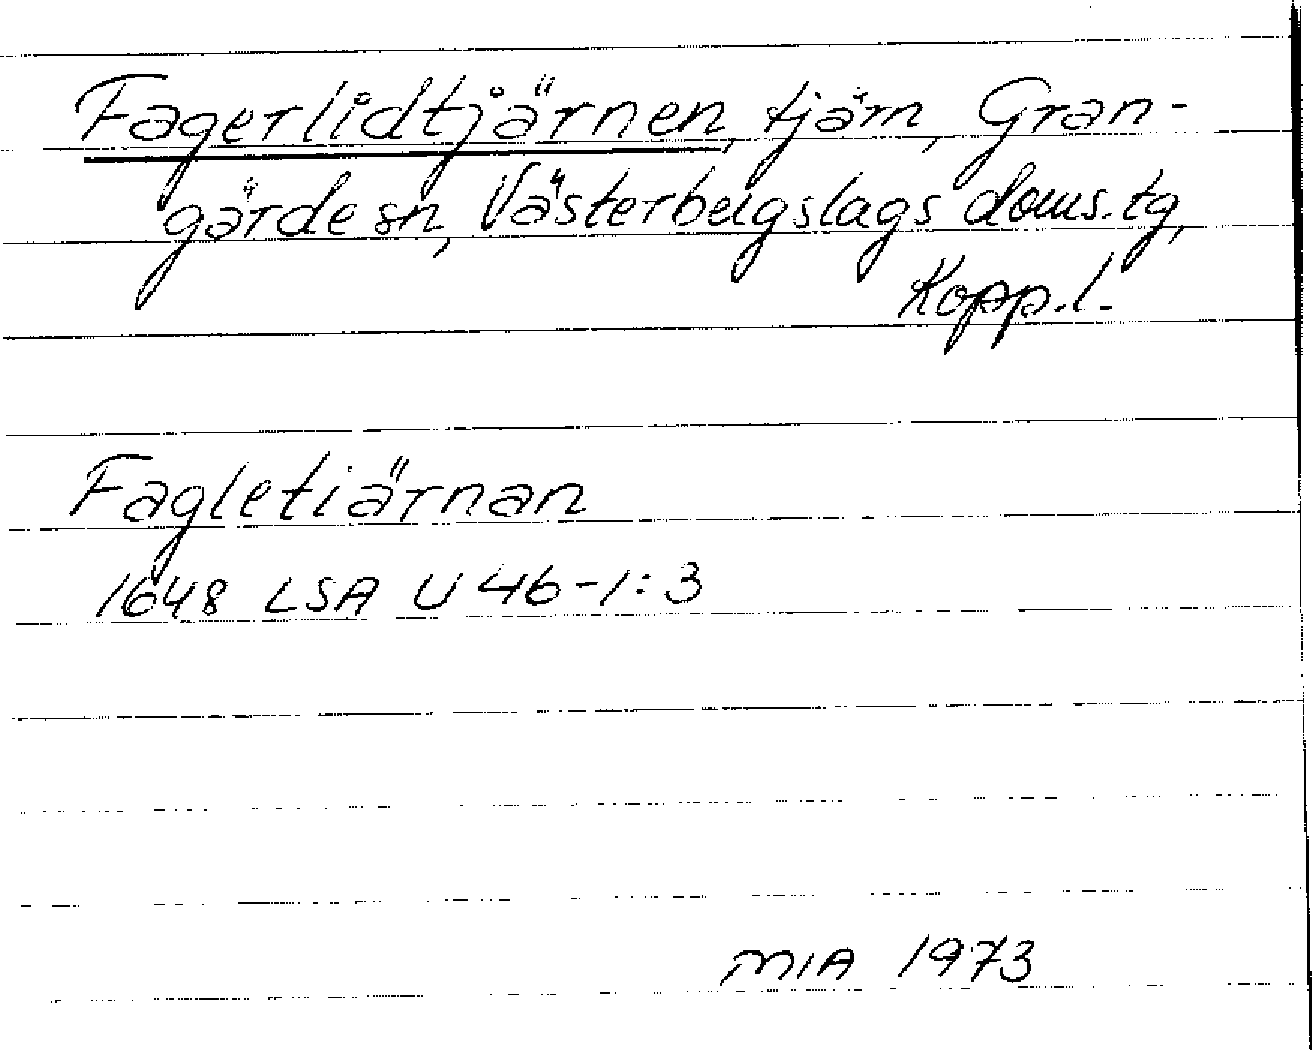 Fagerlidtjärnen, tjärn, Gran-
gärde sn, Västerbergslags doms.tg,
Kopp.l.
Fagletiärnan
1648 LSA U 46-1:3
MIA 1973